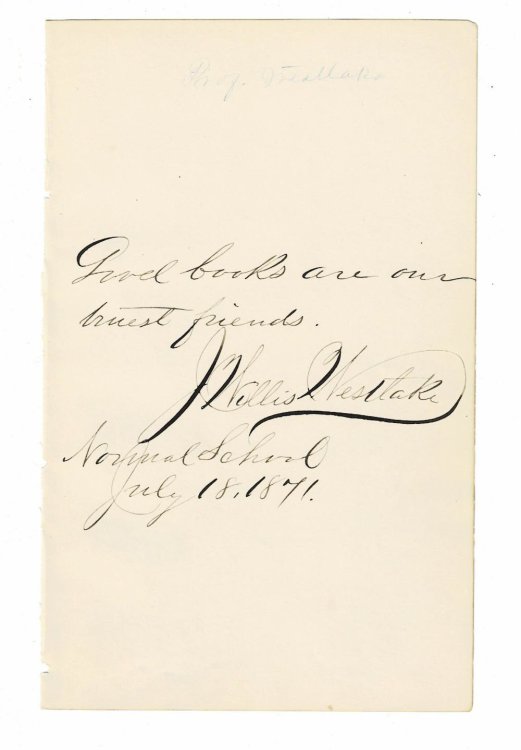 Prof. Westlake
Good books are our
truest friends.
J Willis Westlake
Normal School
July 18, 1871.